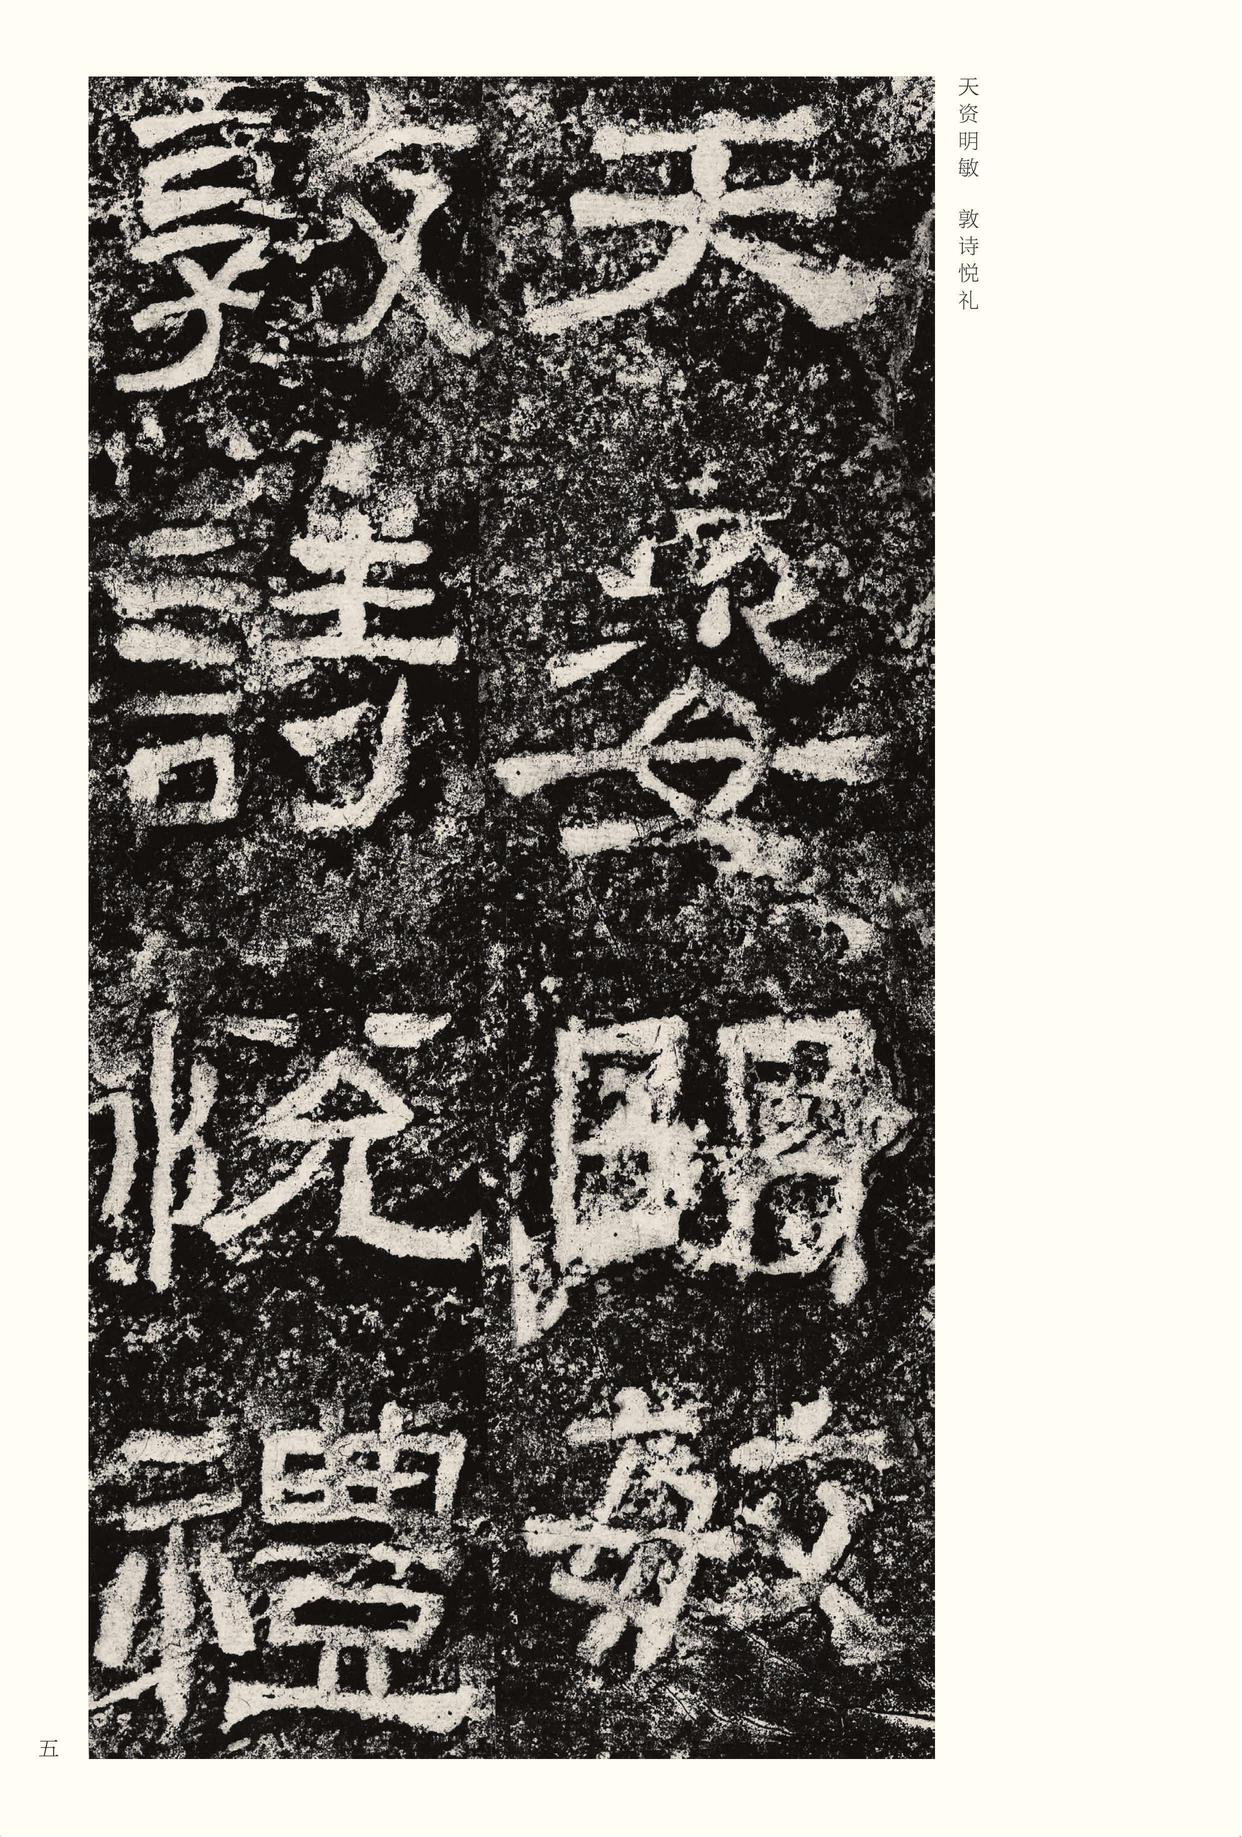 天资明敏　敦诗悦礼
天姿明敏
敦詩悅禮
五